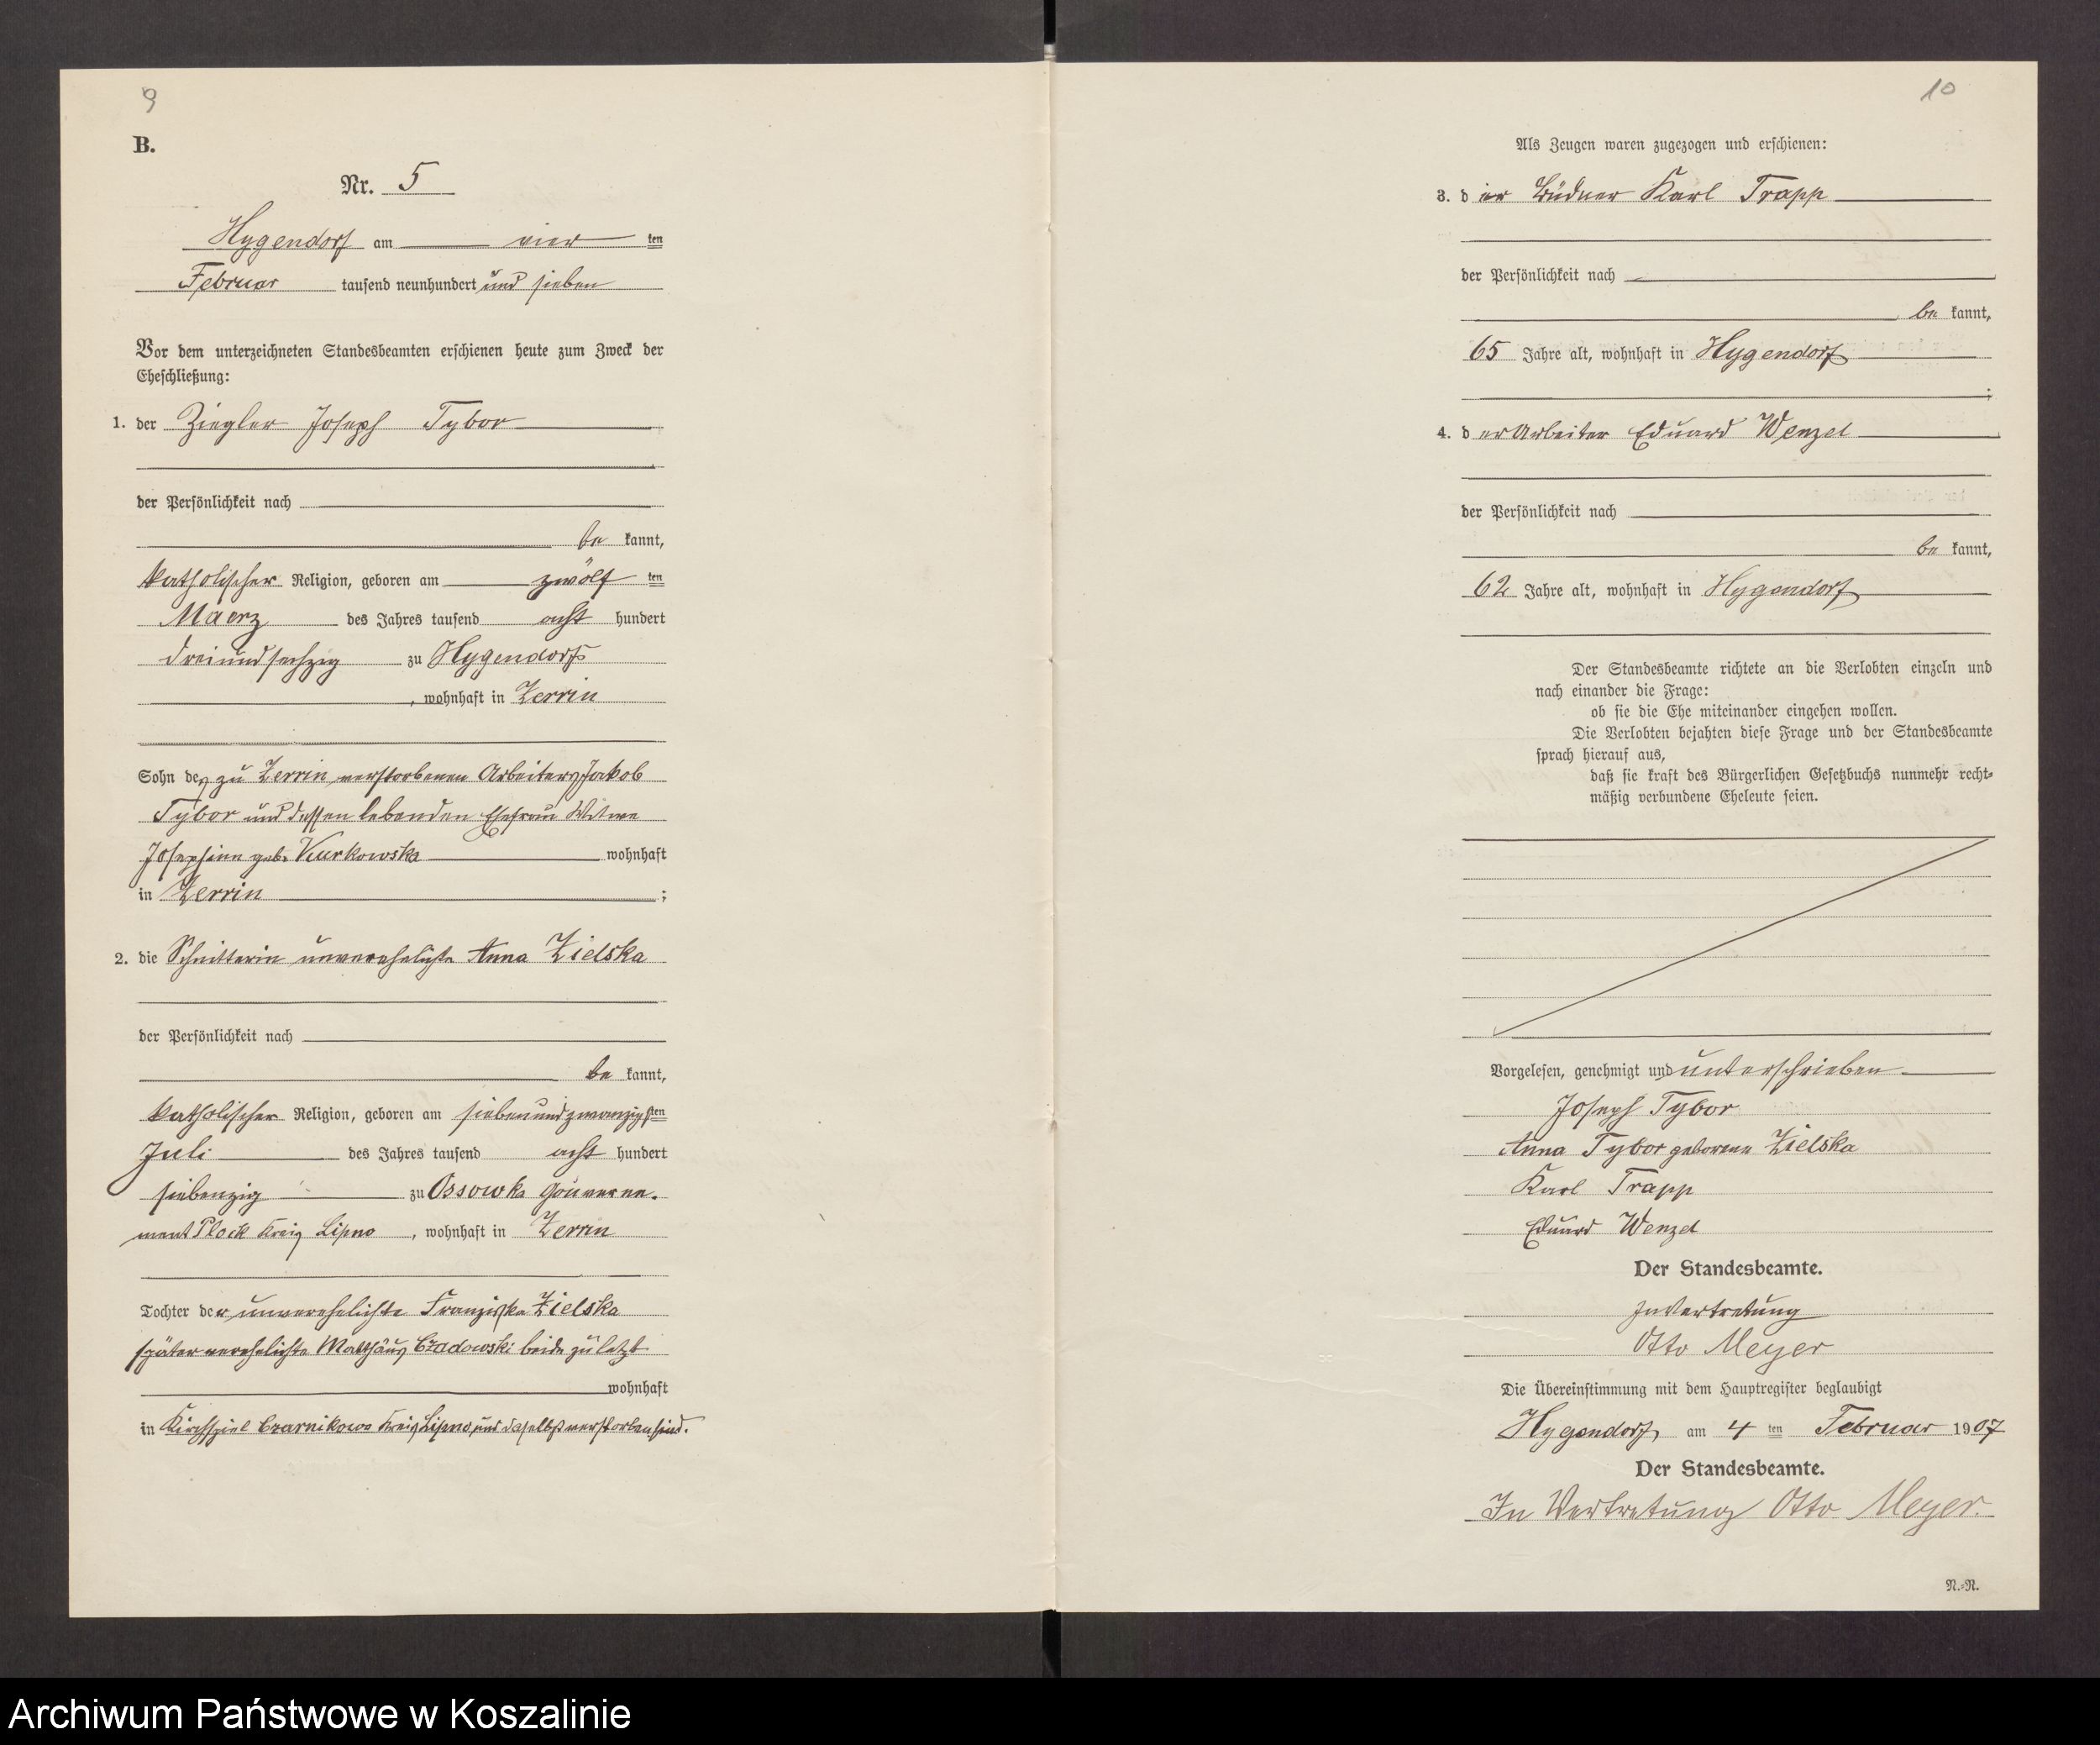 9
B.
Nr. 5
Hygendorf am vier ten
Februar tausend neunhundert und sieben
Vor dem unterzeichneten Standesbeamten erschienen heute zum Zweck der
Eheschließung:
1. der Ziegler Joseph Tybor
der Persönlichkeit nach
be kannt,
katholischer Religion, geboren am zwölf ten
Maerz des Jahres tausend acht hundert
dreiundsechzig zu Hygendorf
, wohnhaft in Zerrin
Sohn des zu Zerrin verstorbenen Arbeiters Jakob
Tybor und dessen lebenden Ehefrau Witwe
Josephine geb. Kurkowska wohnhaft
in Zerrin ;
2. die Schnitterin unverehelichte Anna Zielska
der Persönlichkeit nach
be kannt,
katholischer Religion, geboren am siebenundzwanzigsten
Juli des Jahres tausend acht hundert
siebenzig zu Ossowka Gouverne-
ment Plock Kreis Lipno , wohnhaft in Zerrin
Tochter der unverehelichte Franziska Zielska
später verehelichte Matthäus Czadowski beide zuletzt
wohnhaft
in Kirchspiel Czarnikowo Kreis Lipno, und daselbst verstorben sind.
10
Als Zeugen waren zugezogen und erschienen:
3. der Büdner Karl Trapp
der Persönlichkeit nach
be kannt,
65 Jahre alt, wohnhaft in Hygendorf
;
4. der Arbeiter Eduard Wenzel
der Persönlichkeit nach
be kannt,
62 Jahre alt, wohnhaft in Hygendorf
Der Standesbeamte richtete an die Verlobten einzeln und
nach einander die Frage:
ob sie die Ehe miteinander eingehen wollen.
Die Verlobten bejahten diese Frage und der Standesbeamte
sprach hierauf aus,
daß sie kraft des Bürgerlichen Gesetzbuchs nunmehr recht-
mäßig verbundene Eheleute seien.
Vorgelesen, genehmigt und unterschrieben
Joseph Tybor
Anna Tybor geborene Zielska
Karl Trapp
Eduard Wenzel
Der Standesbeamte.
In Vertretung
Otto Meyer
Die Übereinstimmung mit dem Hauptregister beglaubigt
Hygendorf, am 4 ten Februar 1907
Der Standesbeamte.
In Vertretung Otto Meyer.
N.-N.
Archiwum Państwowe w Koszalinie